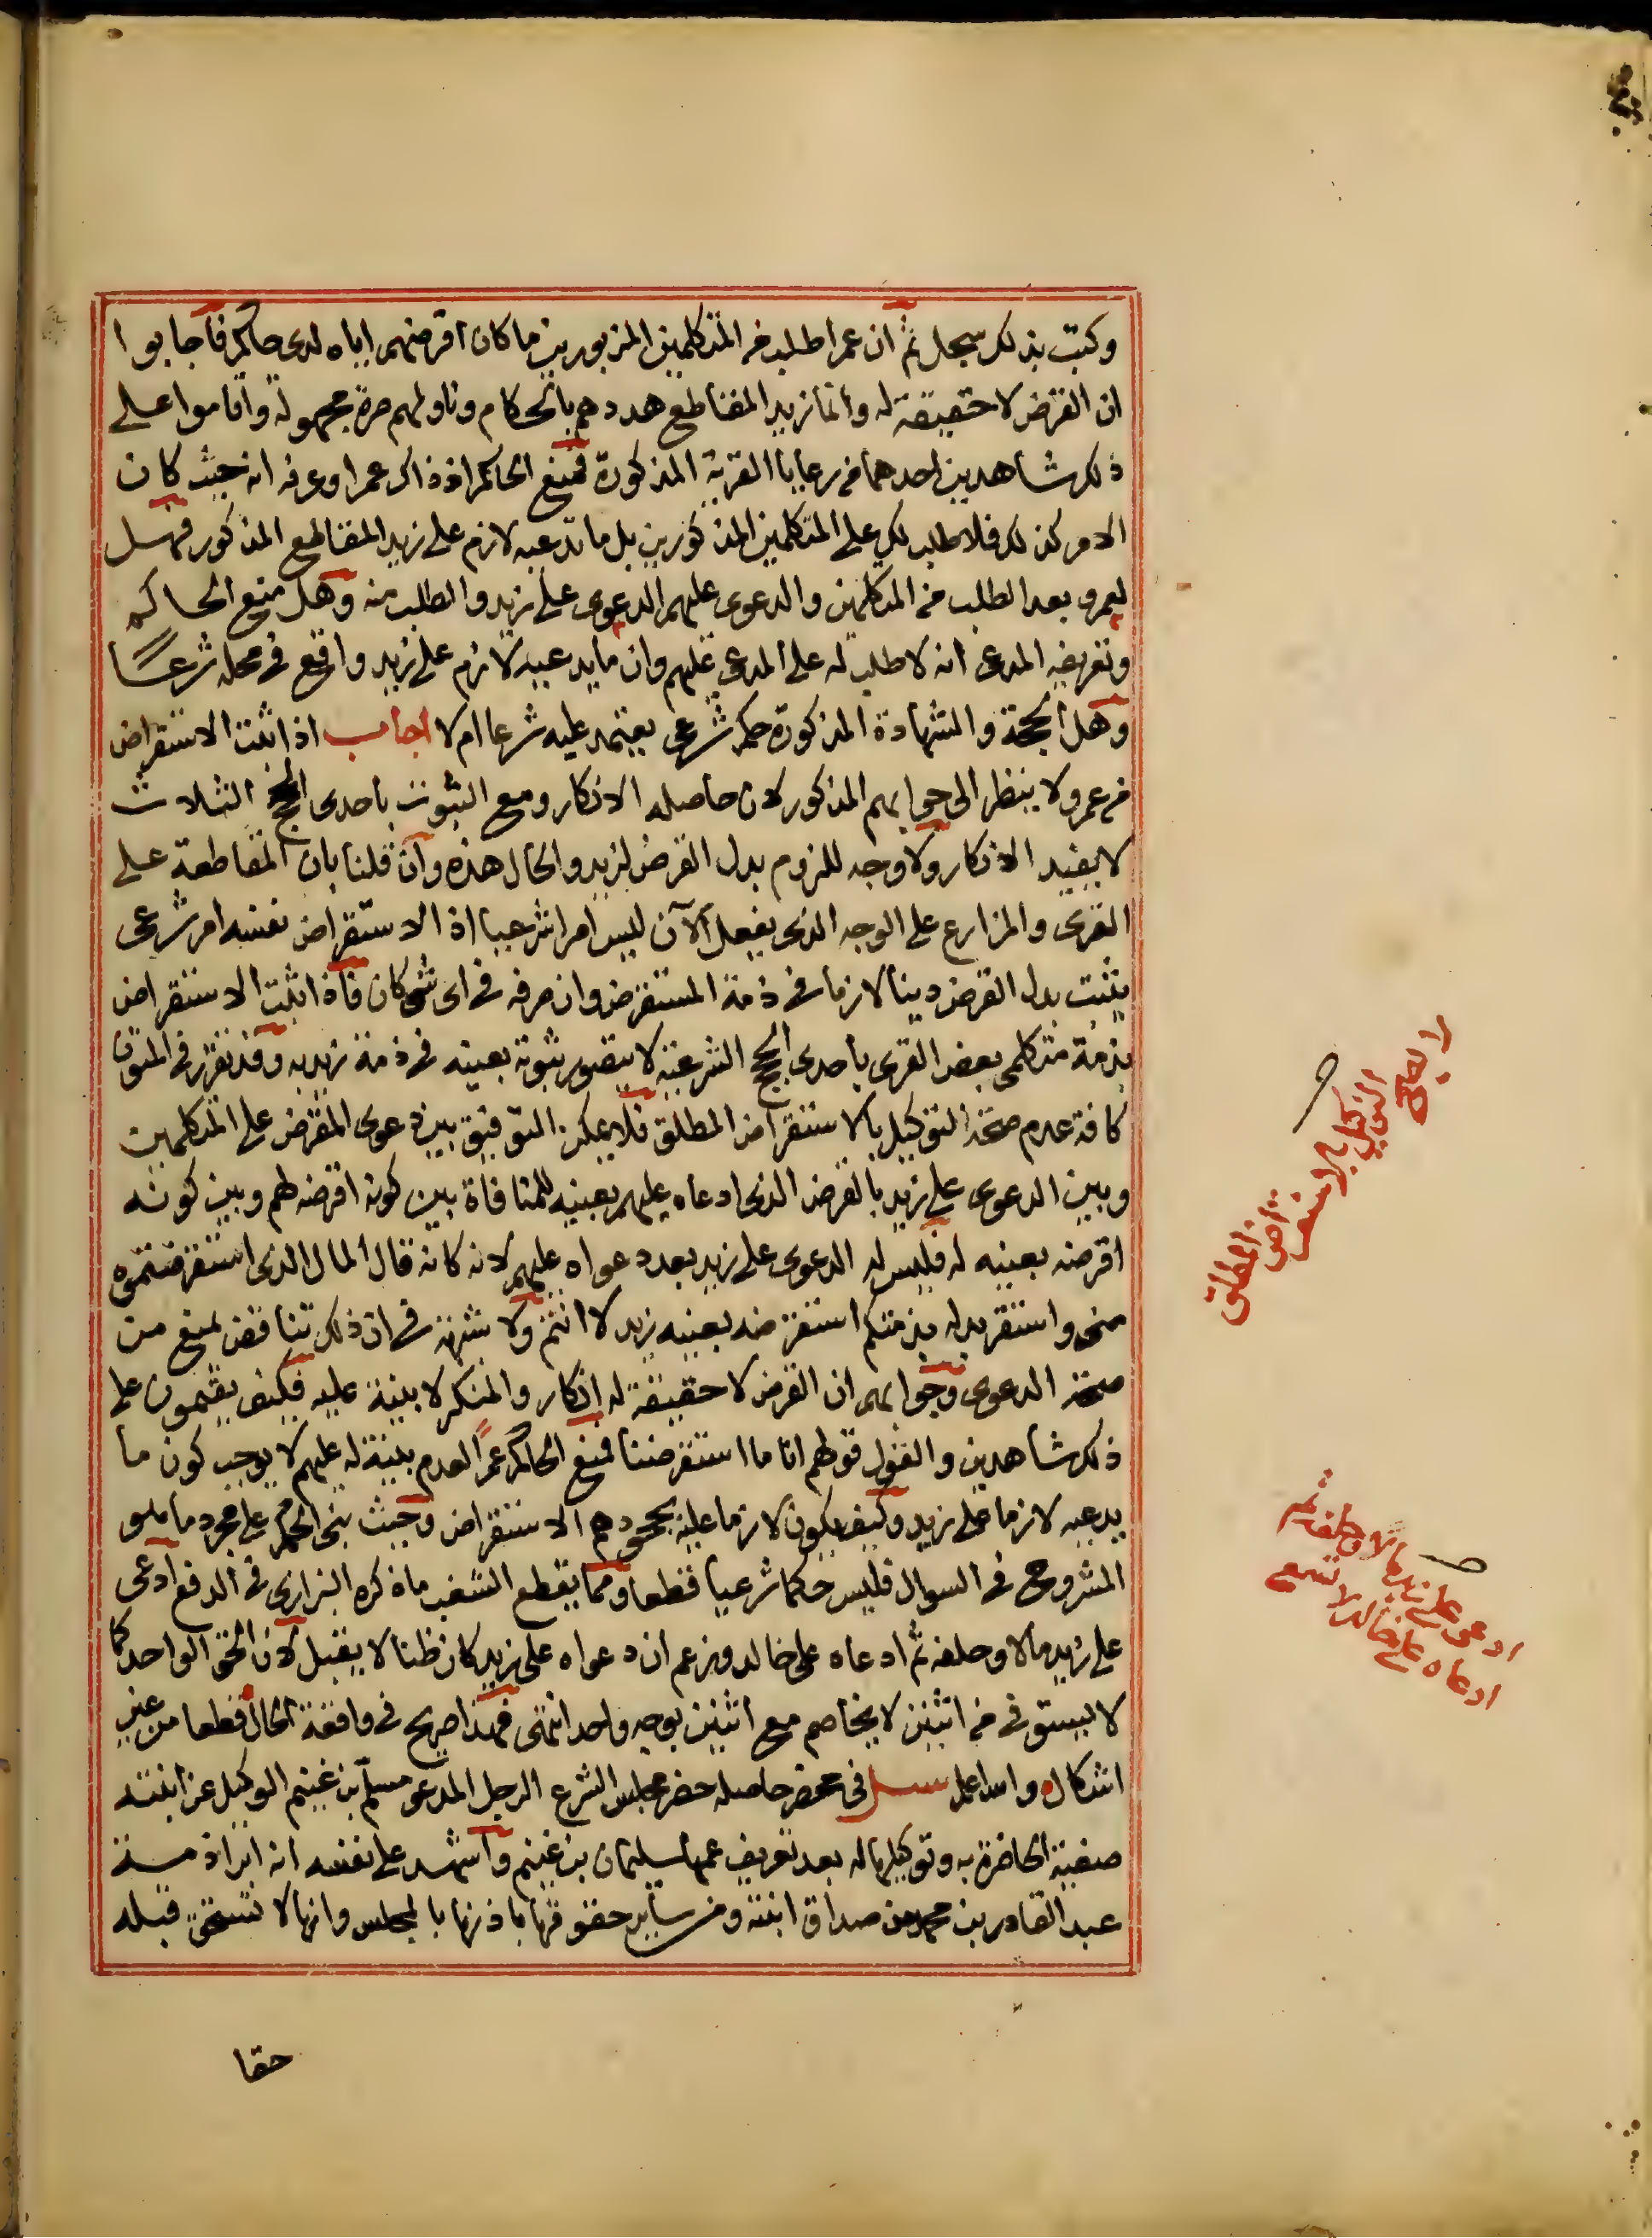 وكتب بذلك سجل ثم ان عمرا طلب من المتكلمين المزبورين ما كان اقرضهم اياه لدى حاكم فاجابوا
ان القرض لا حقيقة له وانما زيد المقاطع هددهم بالحكام وناولهم صرة مجهولة واقاموا على
ذلك شاهدين احدهما من رعايا القرية المذكورة فمنع الحاكم اذ ذاك عمرا وعرفه انه حيث كان
الامر كذلك فلا طلب لك على المتكلمين المذكورين بل ما تدعيه لازم على زيد المقاطع المذكور فهل
لعمرو بعد الطلب من المتكلمين والدعوى عليهم الدعوى على زيد والطلب منه وهل منع الحاكم
وتعريفه المدعى انه لا طلب له على المدعى عليهم وان ما يدعيه لازم على زيد واقع في محله شرعا
وهل الحجة والشهادة المذكورة حكم شرعي يعتمد عليه شرعا ام لا اجاب اذا ثبت الاستقراض
من عمرو لا ينظر الى جوابهم المذكور لان حاصله الانكار ومع الثبوت باحدى الحجج الثلاث
لا يفيد الانكار ولا وجه للزوم بدل القرض لزيد والحال هذه وان قلنا بان المقاطعة على
القرى والمزارع على الوجه الذي يفعل الآن ليس امرا شرعيا اذ الاستقراض نفسه امر شرعي
يثبت بدل القرض دينا لازما في ذمة المستقرض وان صرفه في اى شئ كان فاذا ثبت الاستقراض
بذمة متكلمي بعض القرى باحدى الحجج الشرعية لا يتصور ثبوته بعينه في ذمة زيد به وقد تقرر في المتون
كافة عدم صحة التوكيل بالاستقراض المطلق فلا يمكن التوفيق بين دعوى المقرض على المتكلمين
وبين الدعوى على زيد بالقرض الذي ادعاه عليهم بعينه للمنافاة بين كونه اقرضه لهم وبين كونه
اقرضه بعينه له فليس له الدعوى على زيد بعد دعواه عليهم لانه كانه قال المال الذي استقرضتموه
منى واستقر بدله بذمتكم استقرضه بعينه زيد لا انتم ولا شبهة في ان ذلك تناقض يمنع من
صحة الدعوى وجوابهم ان القرض لا حقيقة له انكار والمنكر لا بينة عليه فكيف يقيمون على
ذلك شاهدين والقول قولهم انا ما استقرضنا فمنع الحاكم عمرا لعدم بينة له عليهم لا يوجب كون ما
يدعيه لازما على زيد وكيف يكون لازما عليه بجحودهم الاستقراض وحيث بنى الحكم على مجرد ما هو
المشروح في السوال فليس حكما شرعيا قطعا ومما يقطع الشغب ما ذكره البزازى في الدفع ادعى
على زيد مالا وحلفه ثم ادعاه على خالد وزعم ان دعواه على زيد كان ظنا لا يقبل لان الحق الواحد كما
لا يستوفى من اثنين لا يخاصم مع اثنين بوجه واحد انتهى فهذا صريح في واقعة الحال قطعا من غير
اشكال والله اعلم سئل في محضر حاصله حضر مجلس الشرع الرجل المدعو مسلم بن غنيم الوكيل عن ابنته
صفية الحاضرة به وتوكيلها له بعد تعريف عمها سليمان بن غنيم واشهد على نفسه انه ابرا ذمة
عبد القادر بن محمد من صداق ابنته ومن سائر حقوقها باذنها بالمجلس وانها لا تستحق قبله
حقا
لا يصح
التوكيل بالاستقراض
المطلق
ادعى على زيد مالا وحلفه ثم
ادعاه على خالد لا تسمع